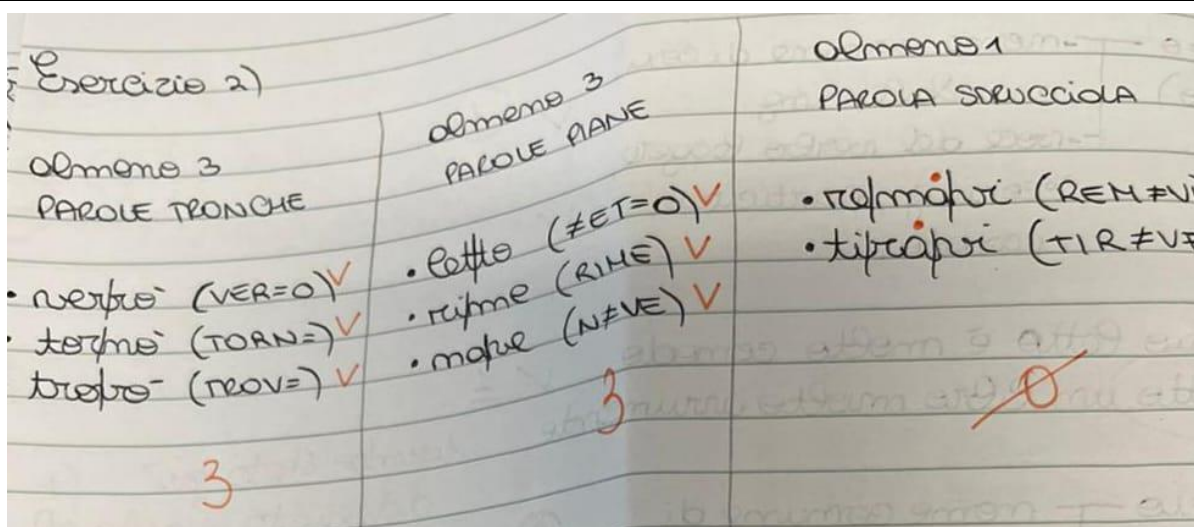 Esercizio 2)
almeno 3
PAROLE TRONCHE
• ver/rò (VER=O) V
• tor/nò (TORN=) V
tro/vò (TROV=) V
3
almeno 3
PAROLE PIANE
• let/to (≠ET=O) V
• ri/me (RIME) V
• na/ve (N≠VE) V
3
almeno 1
PAROLA SDRUCCIOLA
• (REM≠VI
• (TIR≠V
0